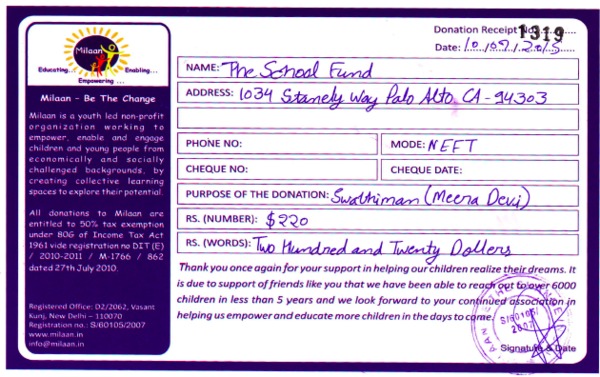 Milaan
Educating... Enabling...
Empowering ...
Milaan - Be The Change
Milaan is a youth led non-profit
organization working to
empower, enable and engage
children and young people from
economically and socially
challenged backgrounds, by
creating collective learning
spaces to explore their potential.
All donations to Milaan are
entitled to 50% tax exemption
under 80G of Income Tax Act
1961 vide registration no DIT (E)
/ 2010-2011 / M-1766 / 862
dated 27th July 2010.
Registered Office: D2/2062, Vasant
Kunj, New Delhi – 110070
Registration no.: S/60105/2007
www.milaan.in
info@milaan.in
Donation Receipt No. 1319
Date: 10/09/2015
NAME: The School Fund
ADDRESS: 1034 Stanely Way Palo Alto, CA - 94303
PHONE NO: MODE: NEFT
CHEQUE NO: CHEQUE DATE:
PURPOSE OF THE DONATION: Swabhiman (Meena Devi)
RS. (NUMBER): $220
RS. (WORDS): Two Hundred and Twenty Dollers
Thank you once again for your support in helping our children realize their dreams. It
is due to support of friends like you that we have been able to reach out to over 6000
children in less than 5 years and we look forward to your continued association in
helping us empower and educate more children in the days to come.
S/60105/
2007
Signature & Date